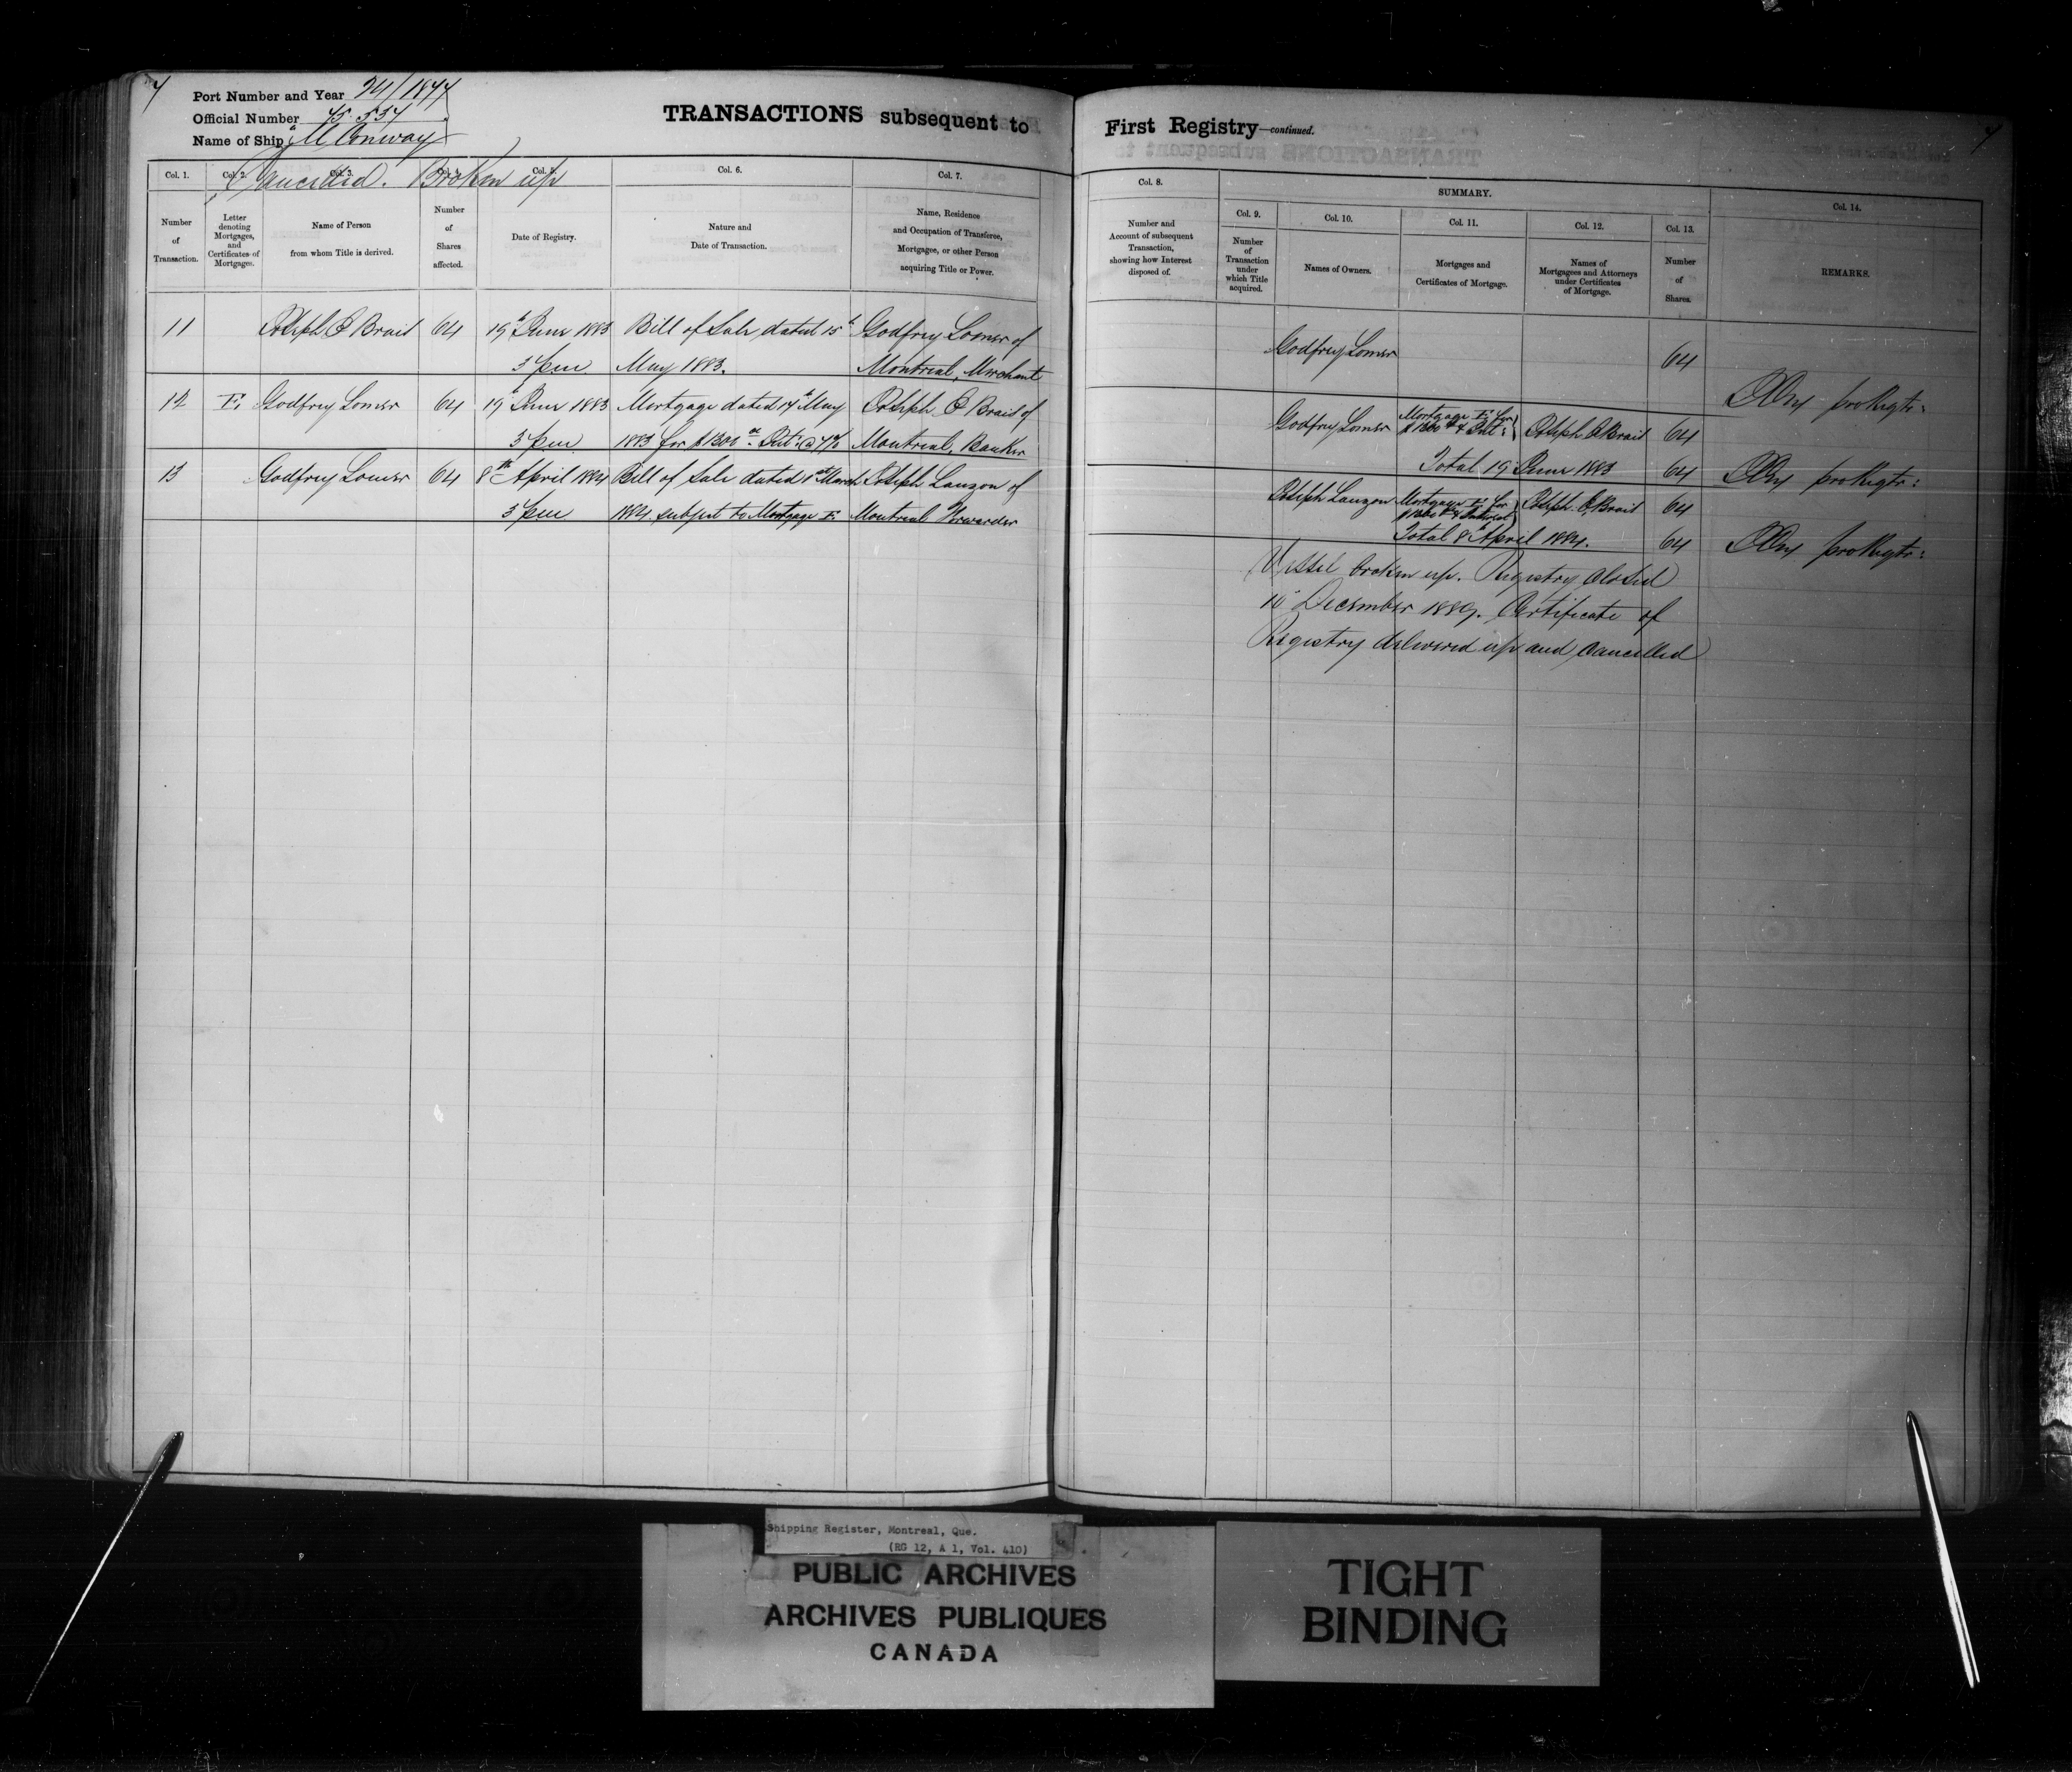 7
Port Number and Year 24/1877
Official Number 75.557
Name of Ship "M Conway"
TRANSACTIONS subsequent to
First Registry—continued.
7
Cancelled. Broken up
Col. 1. Col. 2. Col. 3. Col. 5. Col. 6. Col. 7.
Number of Transaction.
Letter denoting Mortgages, and Certificates of Mortgages.
Name of Person from whom Title is derived.
Number of Shares affected.
Date of Registry.
Nature and Date of Transaction.
Name, Residence and Occupation of Transferee, Mortgagee, or other Person acquiring Title or Power.
11 Joseph E Brait 64 19th June 1883 Bill of Sale dated 15th Godfrey Lomer of
3 pm May 1883. Montreal, Merchant
12 E. Godfrey Lomer 64 19th June 1883 Mortgage dated 17th May Joseph E Brait of
3 pm 1883 for $1300 Int: @ 7% Montreal, Banker
13 Godfrey Lomer 64 8th April 1884 Bill of Sale dated 1st March Joseph Lauzon of
3 pm 1884 subject to Mortgage E. Montreal Forwarder
Col. 8. SUMMARY. Col. 14.
Col. 9. Col. 10. Col. 11. Col. 12. Col. 13.
Number and Account of subsequent Transaction, showing how Interest disposed of.
Number of Transaction under which Title acquired.
Names of Owners.
Mortgages and Certificates of Mortgage.
Names of Mortgagees and Attorneys under Certificates of Mortgage.
Number of Shares.
REMARKS.
Godfrey Lomer 64
pro Regtr:
Godfrey Lomer Mortgage E. for $1300 & Int: Joseph E Brait 64
Total 19 June 1883 64 pro Regtr:
Joseph Lauzon Mortgage E. for $1300 & Interest Joseph E. Brait 64
Total 8th April 1884. 64 pro Regtr:
Vessel broken up. Registry Closed
10 December 1889. Certificate of
Registry delivered up and Cancelled
Shipping Register, Montreal, Que.
(RG 12, A 1, Vol. 410)
PUBLIC ARCHIVES
ARCHIVES PUBLIQUES
CANADA
TIGHT
BINDING